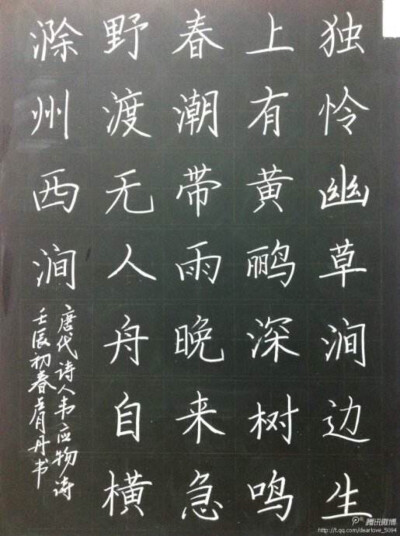 独怜幽草涧边生
上有黄鹂深树鸣
春潮带雨晚来急
野渡无人舟自横
滁州西涧
唐代诗人韦应物诗
壬辰初春肖丹书
腾讯微博
http://t.qq.com/dearlove_5084